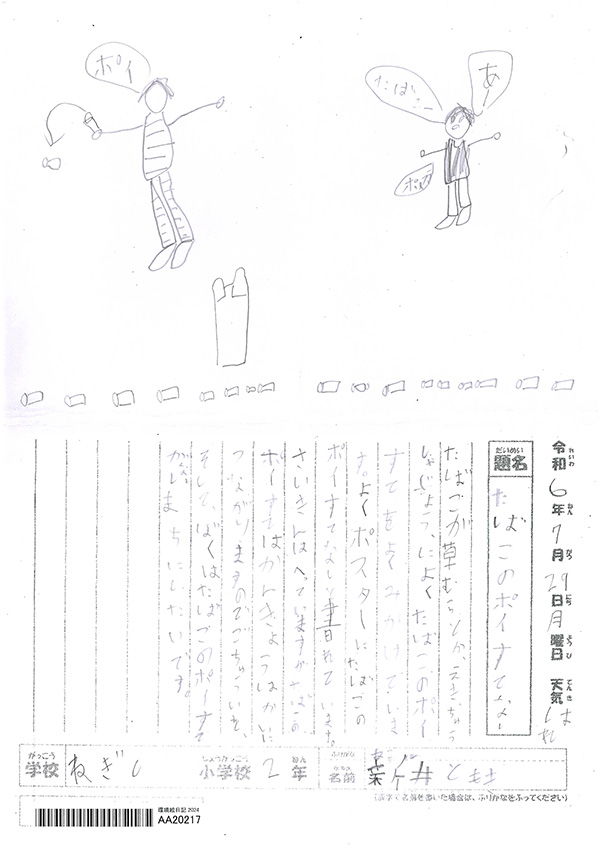 ポイ
あー
たばこー
ポイ
令和6年7月29日月曜日 天気 はれ
れいわ ねん がつ にち ようび てんき
だいめい
題名
たばこのポイすてダメ
たばこが草むらとか、えきちゅう
しゃじょう、によくたばこのポイ
すてをよくみかけていま
す。よくポスターにたばこの
ポイすてなしと書かれています。
さいきんは、へっていますがたばこの
ポイすてはかんきょうはかいに
つながりますのでごちゅういを、
そして、ぼくはたばこのポイすて
がないまちにしたいです。
がっこう
学校
ねぎし
しょうがっこう
小学校
2
ねん
年
ふりがな
なまえ
名前
ときき
(漢字で名前を書いた場合は、ふりがなをふってください)
環境絵日記 2024
AA20217